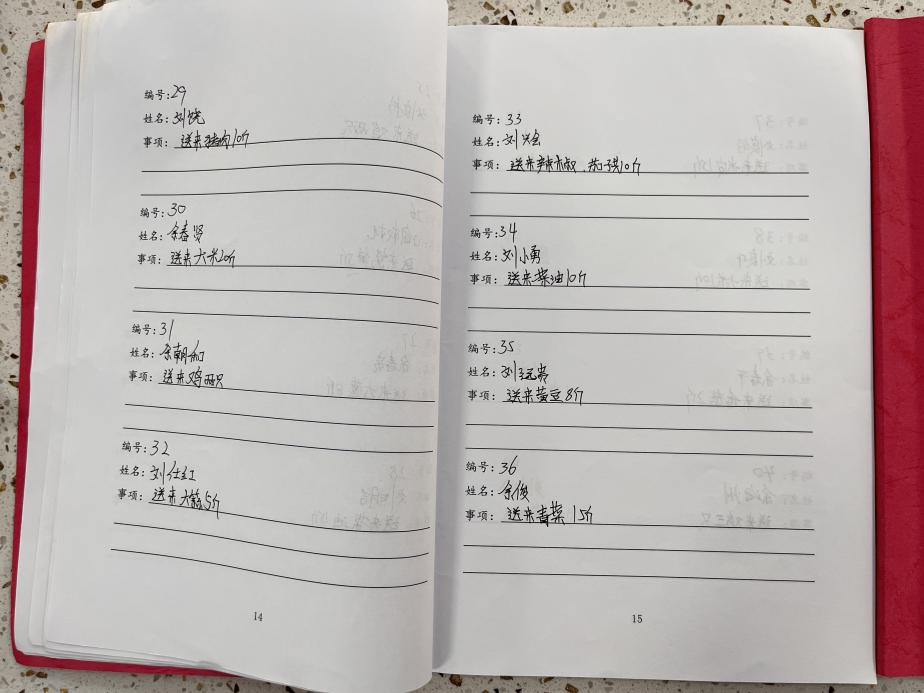 编号:29
姓名:刘饶
事项:送来猪肉10斤
编号:30
姓名:余春贤
事项:送来大米20斤
编号:31
姓名:余朝和
事项:送来鸡两只
编号:32
姓名:刘仕红
事项:送来大蒜5斤
14
编号:33
姓名:刘兴会
事项:送来辣椒、茄子共10斤
编号:34
姓名:刘小勇
事项:送来柴油10斤
编号:35
姓名:刘远贵
事项:送来黄豆8斤
编号:36
姓名:余俊
事项:送来青菜15斤
15